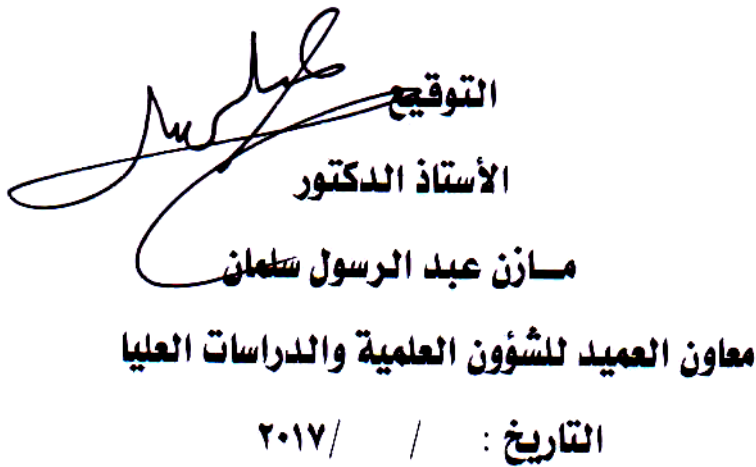 التوقيع
الأستاذ الدكتور
مـــازن عبد الرسول سلمان
معاون العميد للشؤون العلمية والدراسات العليا
التاريخ : / /٢٠١٧